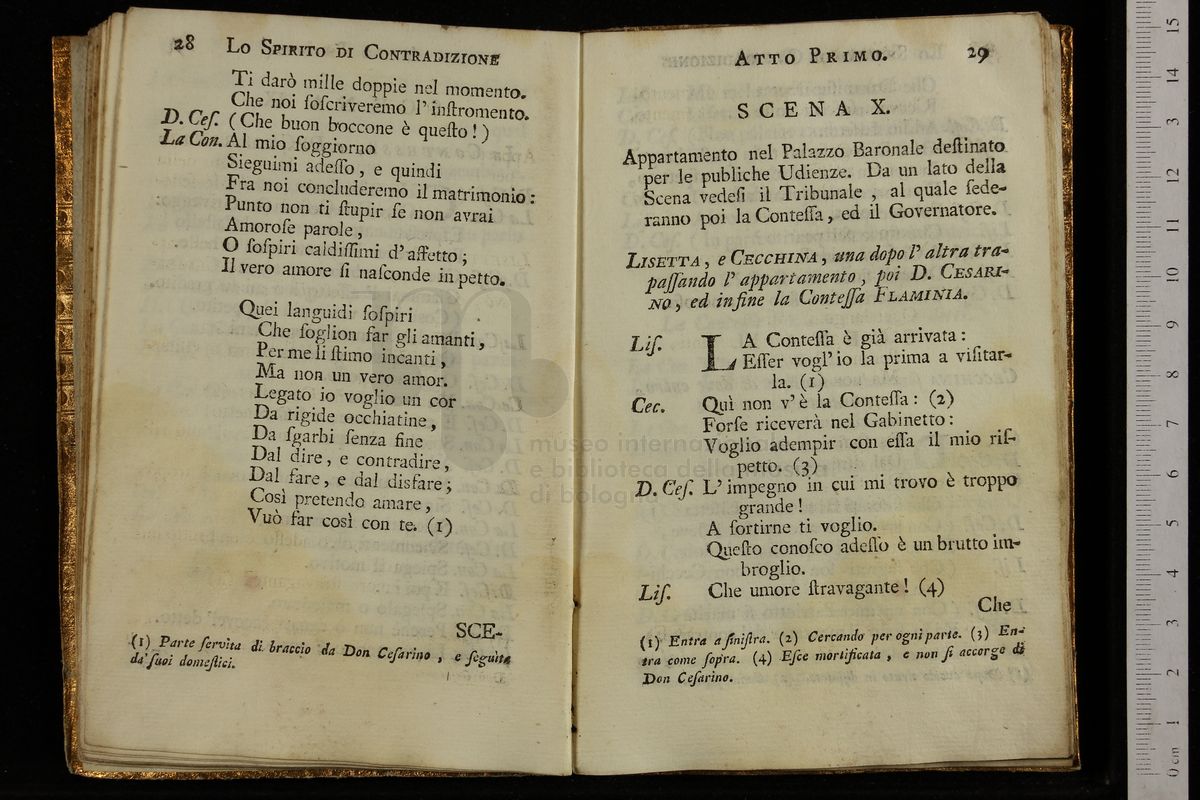 28 Lo Spirito di Contradizione
Ti darò mille doppie nel momento.
Che noi ſoſcriveremo l' inſtromento.
D. Ceſ. (Che buon boccone è queſto!)
La Con. Al mio ſoggiorno
Sieguimi adeſſo, e quindi
Fra noi concluderemo il matrimonio:
Punto non ti ſtupir ſe non avrai
Amoroſe parole,
O ſoſpiri caldiſſimi d' affetto;
Il vero amore ſi naſconde in petto.
Quei languidi ſoſpiri
Che ſoglion far gli amanti,
Per me li ſtimo incanti,
Ma non un vero amor.
Legato io voglio un cor
Da rigide occhiatine,
Da ſgarbi ſenza fine
Dal dire, e contradire,
Dal fare, e dal disfare;
Così pretendo amare,
Vuò far così con te. (1)
SCE-
(1) Parte ſervita di braccio da Don Ceſarino, e ſeguita
da' ſuoi domeſtici.
Atto Primo. 29
SCENA X.
Appartamento nel Palazzo Baronale deſtinato
per le publiche Udienze. Da un lato della
Scena vedeſi il Tribunale, al quale ſede-
ranno poi la Conteſſa, ed il Governatore.
Lisetta, e Cecchina, una dopo l' altra tra-
paſſando l' appartamento, poi D. Cesari-
no, ed infine la Conteſſa Flaminia.
Liſ. LA Conteſſa è già arrivata:
Eſſer vogl' io la prima a viſitar-
la. (1)
Cec. Quì non v' è la Conteſſa: (2)
Forſe riceverà nel Gabinetto:
Voglio adempir con eſſa il mio riſ-
petto. (3)
D. Ceſ. L' impegno in cui mi trovo è troppo
grande!
A ſortirne ti voglio.
Queſto conoſco adeſſo è un brutto im-
broglio.
Liſ. Che umore ſtravagante! (4)
Che
(1) Entra a ſiniſtra. (2) Cercando per ogni parte. (3) En-
tra come ſopra. (4) Eſce mortificata, e non ſi accorge di
Don Ceſarino.
museo internazionale
e biblioteca della
di bologna
0 cm 1 2 3 4 5 6 7 8 9 10 11 12 13 14 15